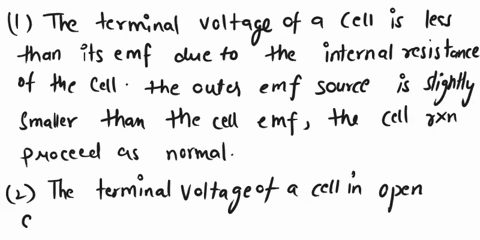 (1) The terminal voltage of a cell is less
than its emf due to the internal resistance
of the cell. the outer emf source is slightly
smaller than the cell emf, the cell rxn
proceed as normal.
(2) The terminal voltage of a cell in open
c